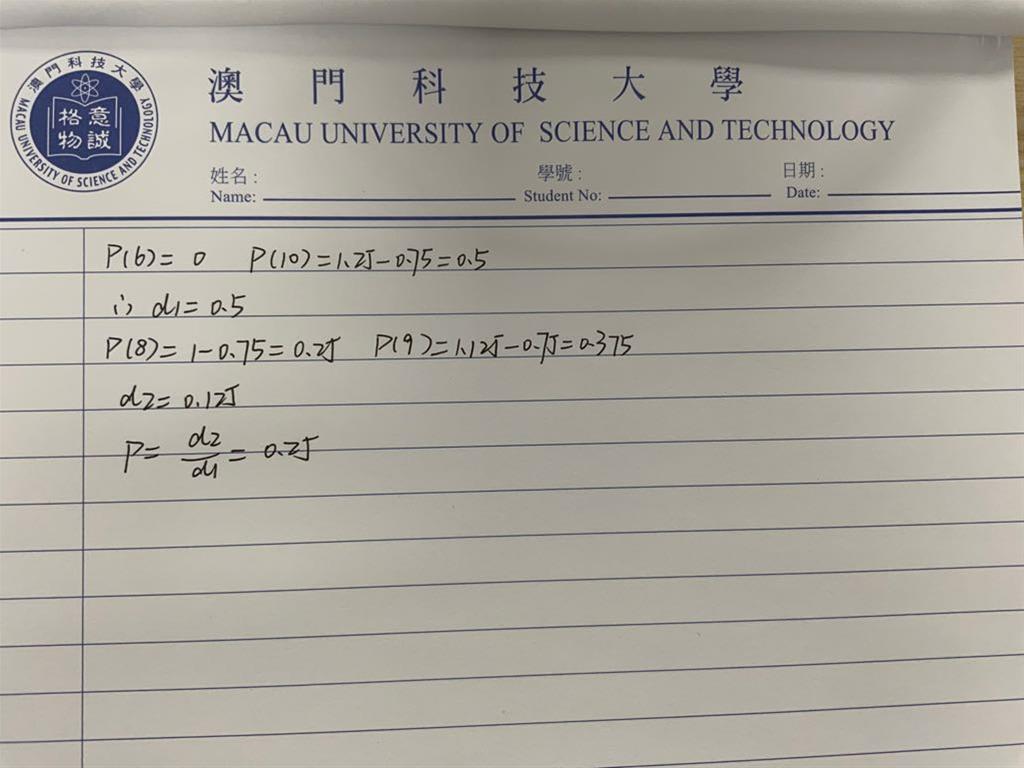 澳門科技大學
MACAU UNIVERSITY OF SCIENCE AND TECHNOLOGY
意誠格物
澳門科技大學
MACAU UNIVERSITY OF SCIENCE AND TECHNOLOGY
姓名: 學號: 日期:
Name: Student No: Date:
P(6)= 0 P(10)=1.25-0.75=0.5
i) d1=0.5
P(8)= 1-0.75=0.25 P(9)=1.125-0.75=0.375
d2=0.125
P= d2/d1 = 0.25